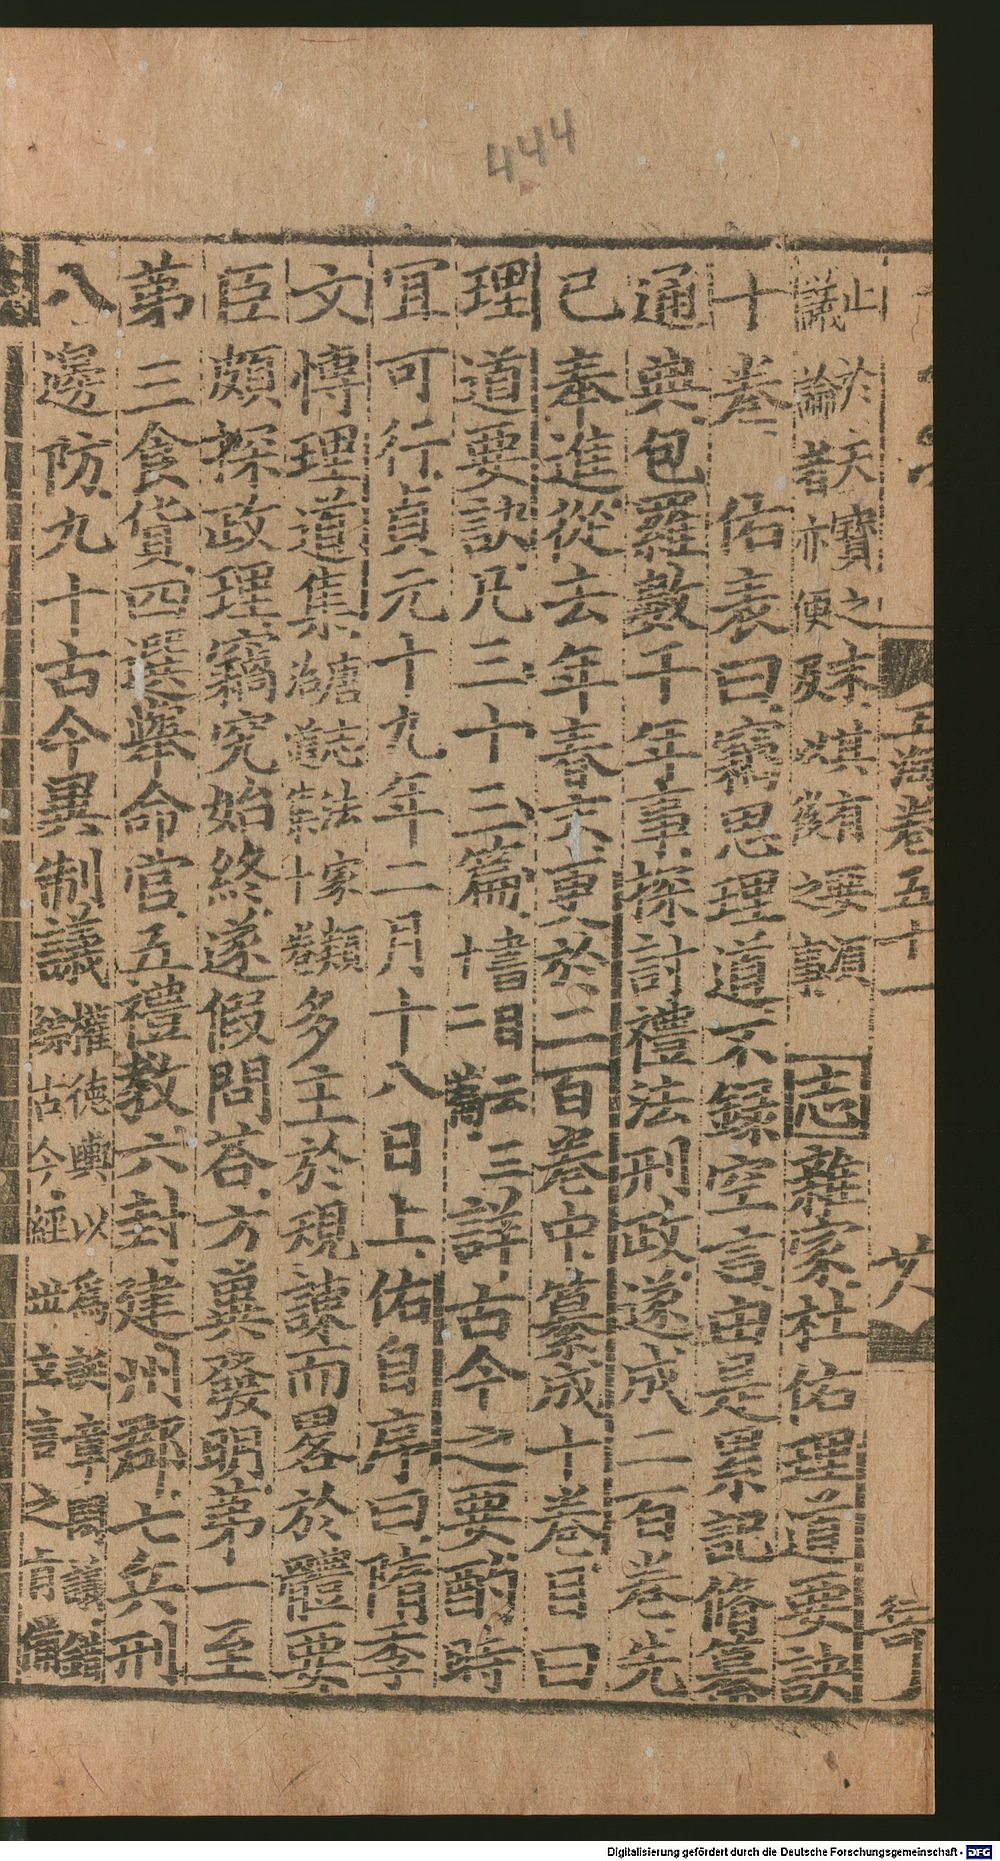 444
玉海卷五十一
廿八
止於天寶之末其有要須
議論者亦便及以後之事
志雜家杜佑理道要訣
十卷佑表曰竊思理道不録空言由是累記脩纂
通典包羅數千年事探討禮法刑政遂成二百卷先
已奉進從去年春末更於二百卷中纂成十卷目曰
理道要訣凡三十三篇
書目云三
十二篇
詳古今之要酌時
宜可行貞元十九年二月十八日上佑自序曰隋季
文博理道集
唐志法家類
治道集十卷
多主於規諫而略於體要
臣頗探政理竊究始終遂假問荅方冀發明第一至
第三食貨四選舉命官五禮教六封建州郡七兵刑
八邊防九十古今異制議
權德輿以為誕章閎議錯
綜古今經世立言之旨備
Digitalisierung gefördert durch die Deutsche Forschungsgemeinschaft - DFG